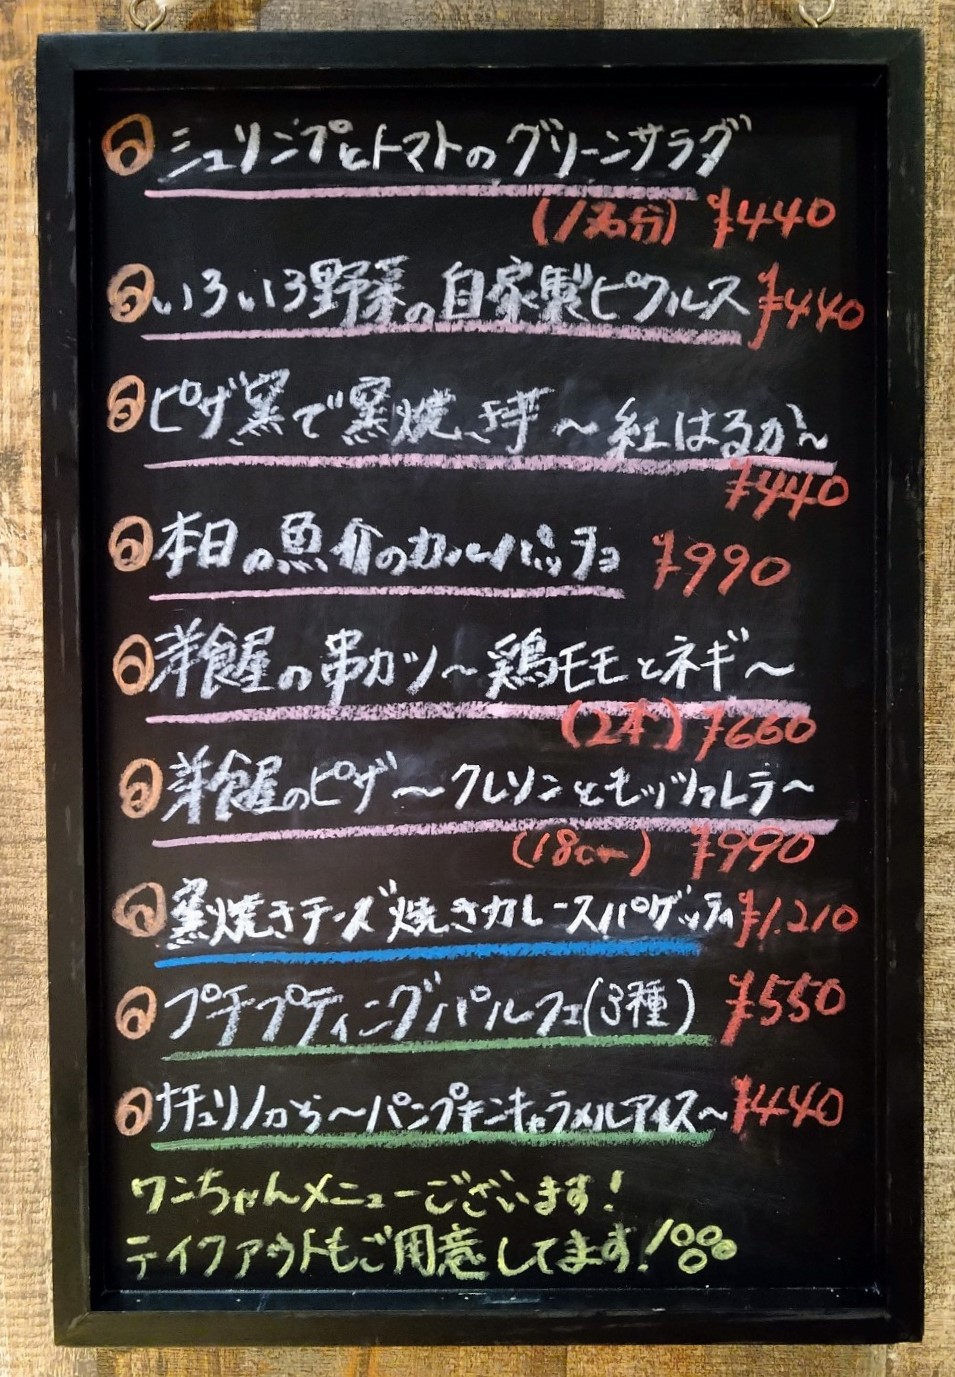 シュリンプとトマトのグリーンサラダ
(1名分) ¥440
いろいろ野菜の自家製ピクルス ¥440
ピザ窯で窯焼き芋～紅はるか～
¥440
本日の魚介のカルパッチョ ¥990
洋食屋の串カツ～鶏モモとネギ～
(2本) ¥660
洋食屋のピザ～クレソンともッツァレラ～
(18cm) ¥990
窯焼きチーズ焼きカレースパゲッティ ¥1.210
プチプティングパルフェ(3種) ¥550
ナチュリノから～パンプキンキャラメルアイス～ ¥440
ワンちゃんメニューございます!
テイクアウトもご用意してます!